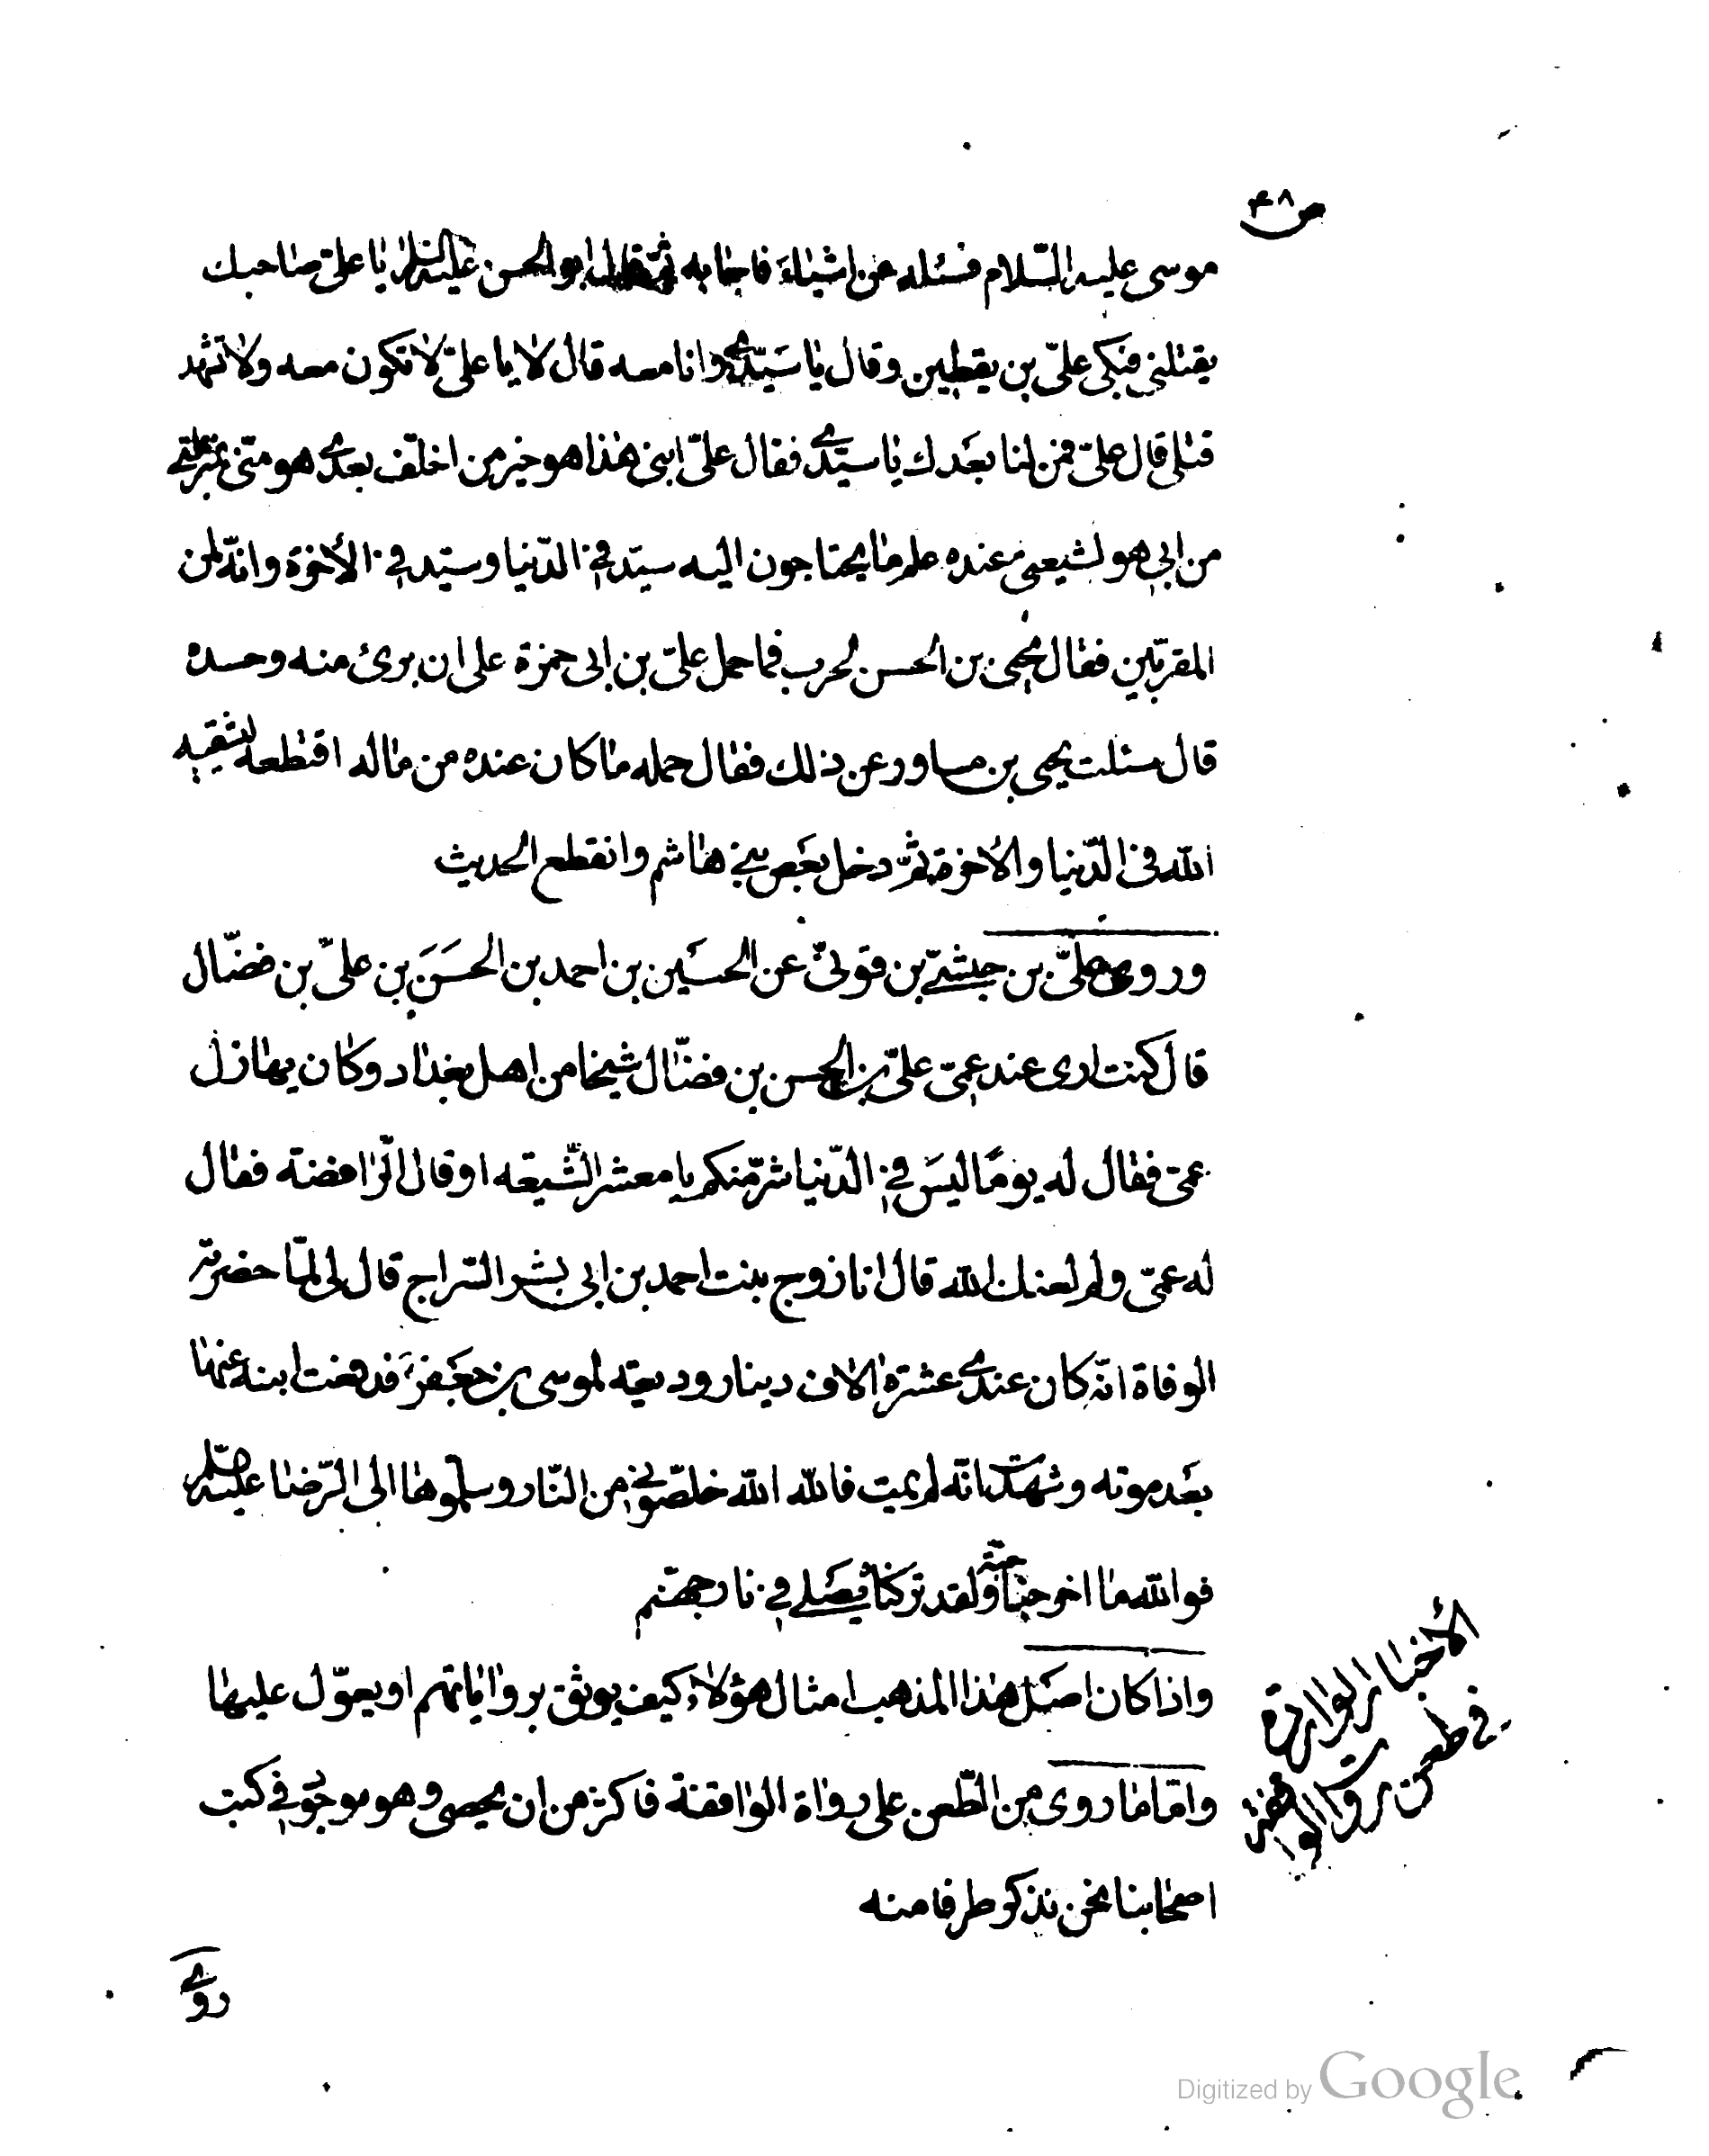 ص ۴۸
موسى عليه السّلام فسئله عن اشياء فاجابه ثمّ قال ابو الحسن عليه السّلام يا علىّ صاحبك
يقتلنى فبكى علىّ بن يقطين وقال يا سيّدى وانا معه قال لا يا علىّ لا تكون معه ولا تشهد
قتلى قال علىّ فمن لنا بعدك يا سيّدى فقال علىّ ابنى هذا هو خير من اخلّف بعدى هو منّى بمنزلتى
من ابى هو لشيعتى عنده علم ما يحتاجون اليه سيّد فى الدّنيا وسيّد فى الأخرة وانّه لمن
المقرّبين فقال يحيى بن الحسن لحرب فما حمل علىّ بن ابى حمزة على ان برئ منه وحسده
قال سئلت يحيى بن مساور عن ذلك فقال حمله ما كان عنده من ماله اقتطعه ليشقيه
الله فى الدّنيا والأخرة ثمّ دخل بعض بنى هاشم وانقطع الحديث
وروى علىّ بن حبشىّ بن قونىّ عن الحسين بن احمد بن الحسن بن علىّ بن فضّال
قال كنت ارى عند عمّى علىّ بن الحسن بن فضّال شيخا من اهل بغداد وكان يهازل
عمّى فقال له يومًا ليس فى الدّنيا شرّ منكم يا معشر الشّيعه او قال الرّافضة فقال
له عمّى ولم لعنك الله قال انا زوج بنت احمد بن ابى بشر السّراج قال لى لمّا حضرته
الوفاة انّه كان عندى عشرة الاف دينار وديعة لموسى بن جعفر فدفعت ابنه عنها
بعد موته وشهدت انّه لم يمت فالله الله خلّصونى من النّار وسلّموها الى الرّضا عليه السّلم
فوالله ما اخرجنا حبّة ولقد تركناه يصلى فى نار جهنّم
واذا كان اصل هذا المذهب امثال هؤلاء كيف يوثق برواياتهم او يعوّل عليها
وامّا ما روى من الطّعن على رواة الواقفة فاكثر من ان يحصى وهو موجود فى كتب
اصحابنا نحن نذكر طرفا منه
الأخبار الواردة
فى طعن رواة الواقفة
روى
Digitized by Google